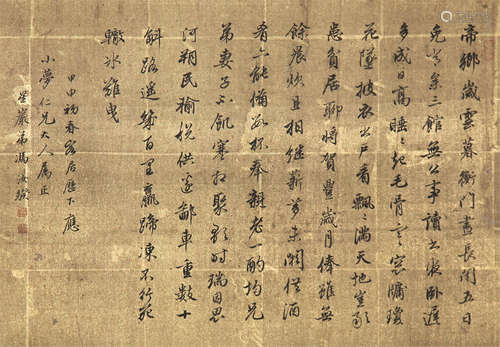 帝鄉歲雲暮衡門晝長閉五日
免常參三館無公事讀書夜臥遲
多成日高睡〻起毛骨寒窗牖瓊
花墜披衣出戶看飄〻滿天地豈敢
患貧居聊將賀豐歲月俸雖無
餘晨炊且相繼薪芻未闕供酒
肴亦能備數杯奉親老一酌均兄
弟妻子不飢寒相聚歌時瑞因思
河朔民輸稅供邊鄙車重數十
斛路遙幾百里羸蹄凍不行死
轍冰難曳
甲申初春客居歷下應
小夢仁兄大人屬正
巖弟馮汝